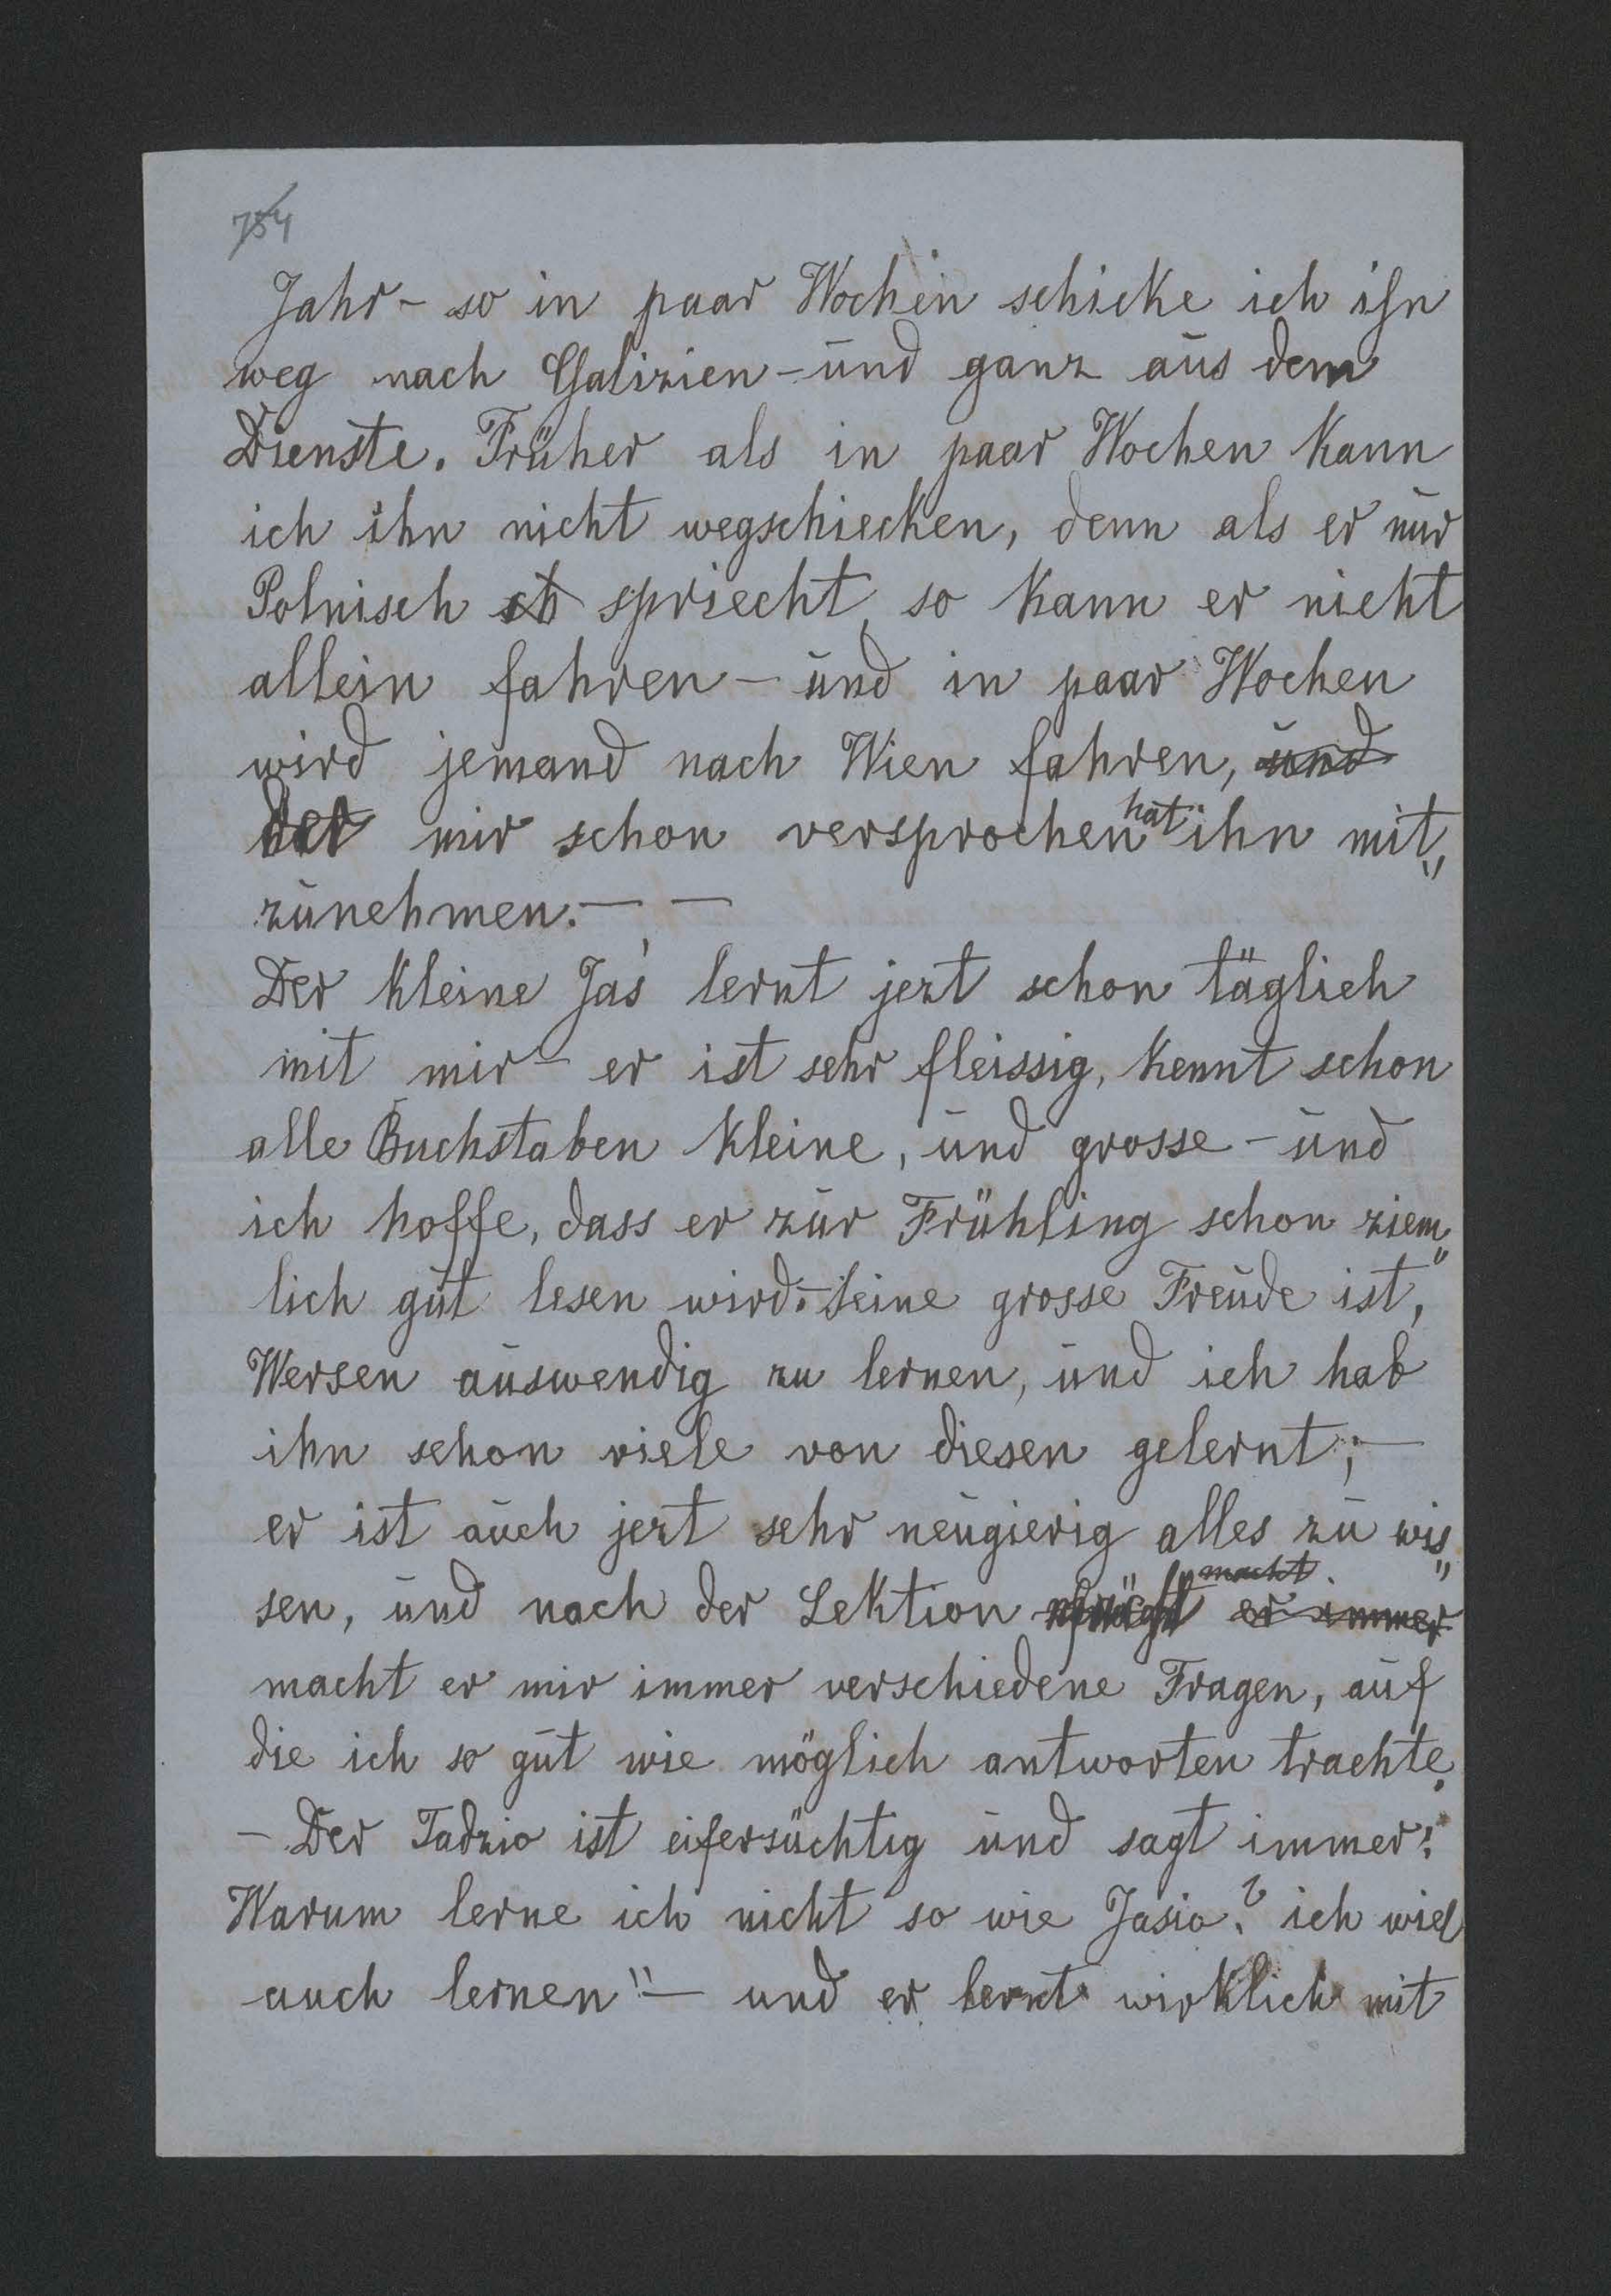 754
Jahr - so in paar Wochen schicke ich ihn
weg nach Galizien - und ganz aus dem
Dienste. Früher als in paar Wochen kann
ich ihn nicht wegschiecken, denn als er nur
Polnisch spriecht, so kann er nicht
allein fahren - und in paar Wochen
wird jemand nach Wien fahren, und
der mir schon versprochen hat ihn mit„
zunehmen. — —
Der kleine Jaś lernt jezt schon täglich
mit mir - er ist sehr fleissig, kennt schon
alle Buchstaben kleine, und grosse - und
ich hoffe, dass er zur Frühling schon ziem„
lich gut lesen wird. - Seine grosse Freude ist,
Wersen auswendig zu lernen, und ich hab
ihn schon viele von diesen gelernt; —
er ist auch jezt sehr neugierig alles zu wis„
sen, und nach der Lektion macht er immer
macht er mir immer verschiedene Fragen, auf
die ich so gut wie möglich antworten trachte.
- Der Tadzio ist eifersüchtig und sagt immer:
Warum lerne ich nicht so wie Jasio? ich wiel
auch lernen" — und er lernt wirklich mit